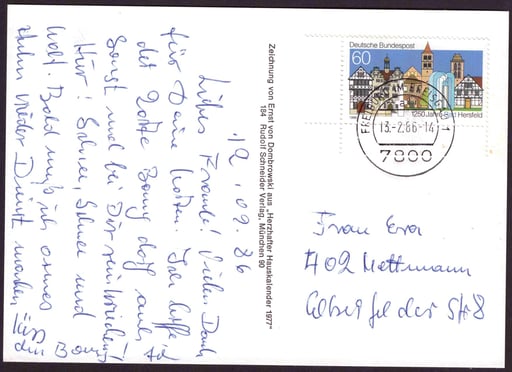 12.02.86
Liebe Freunde! Vielen Dank
für Deine Karten. Ich hoffe
der Rote Bomy darf auch
sonst mal bei Dir reinschneien!
Hier! Schnee, Schnee und
kalt. Bald muß ich armes
wieder Dienst machen
Kuss
den Bomy
Zeichnung von Ernst von Dombrowski aus „Herzhafter Hauskalender 1977“
184 Rudolf Schneider Verlag, München 90
Deutsche Bundespost
60
1250 Jahre Bad Hersfeld
FREIBURG IM BREISGAU 1
13.-2.86-14
7800
Frau Eva
402 Mettmann
Elberfelder Str 8